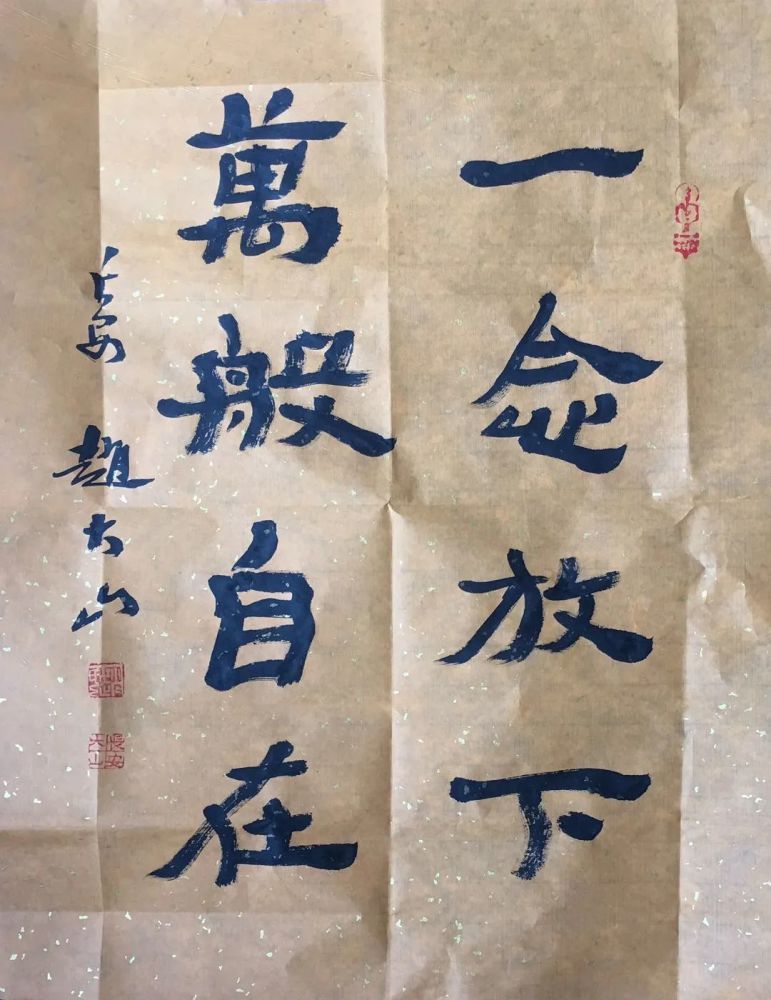 一念放下
萬般自在
长安 趙大山
長安